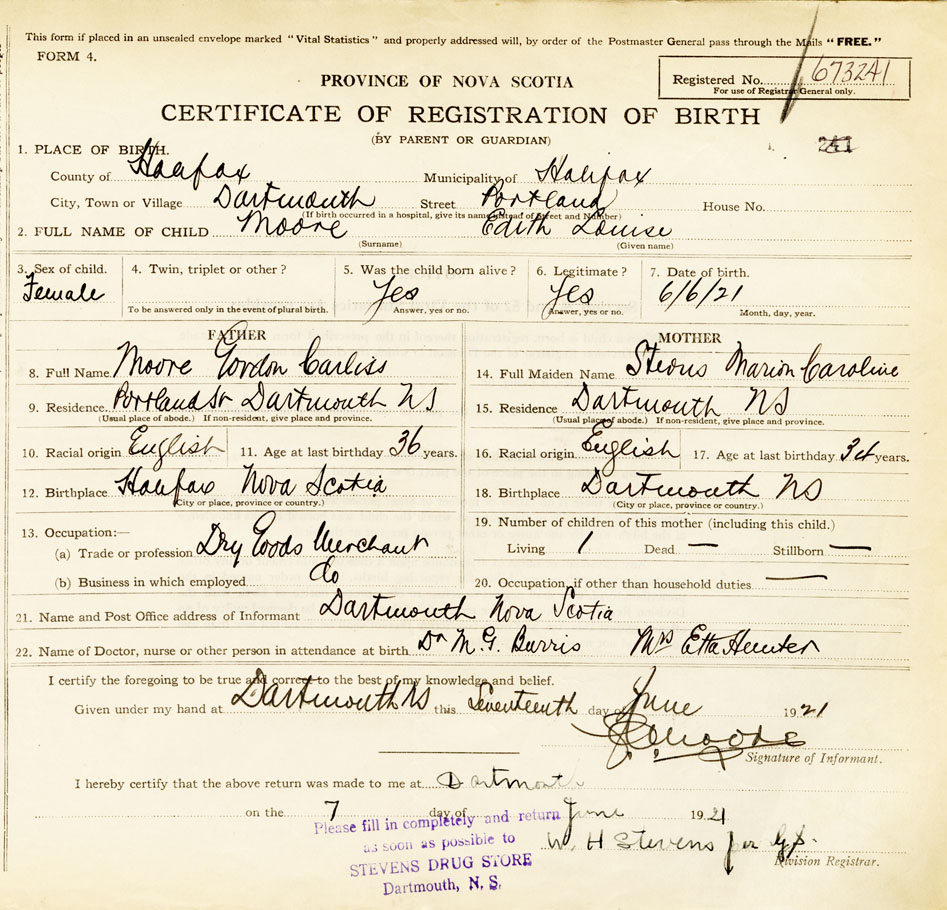 This form if placed in an unsealed envelope marked "Vital Statistics" and properly addressed will, by order of the Postmaster General pass through the Mails "FREE."
FORM 4.
PROVINCE OF NOVA SCOTIA
Registered No. 673241
For use of Registrar General only.
CERTIFICATE OF REGISTRATION OF BIRTH
(BY PARENT OR GUARDIAN)
241
1. PLACE OF BIRTH.
County of Halifax Municipality of Halifax
City, Town or Village Dartmouth Street Portland House No.
(If birth occurred in a hospital, give its name instead of Street and Number)
2. FULL NAME OF CHILD Moore Edith Louise
(Surname) (Given name)
3. Sex of child. 4. Twin, triplet or other? 5. Was the child born alive? 6. Legitimate? 7. Date of birth.
Female Yes Yes 6/6/21
To be answered only in the event of plural birth. Answer, yes or no. Answer, yes or no. Month, day, year.
FATHER MOTHER
8. Full Name Moore Gordon Carliss 14. Full Maiden Name Marion Caroline
9. Residence Portland St Dartmouth NS 15. Residence Dartmouth NS
(Usual place of abode.) If non-resident, give place and province. (Usual place of abode.) If non-resident, give place and province.
10. Racial origin English 11. Age at last birthday 36 years. 16. Racial origin English 17. Age at last birthday years.
12. Birthplace Halifax Nova Scotia 18. Birthplace Dartmouth NS
(City or place, province or country.) (City or place, province or country.)
13. Occupation:— 19. Number of children of this mother (including this child.)
(a) Trade or profession Dry Goods Merchant Living 1 Dead — Stillborn —
(b) Business in which employed Do 20. Occupation, if other than household duties —
21. Name and Post Office address of Informant Dartmouth Nova Scotia
22. Name of Doctor, nurse or other person in attendance at birth Dr M. G. Burris Mrs Etta Hunter
I certify the foregoing to be true and correct to the best of my knowledge and belief.
Given under my hand at Dartmouth NS this Seventeenth day of June 1921
Moore
Signature of Informant.
I hereby certify that the above return was made to me at Dartmouth
on the 7 day of June 1921
W. H Stevens per
Division Registrar.
Please fill in completely and return
as soon as possible to
STEVENS DRUG STORE
Dartmouth, N. S.